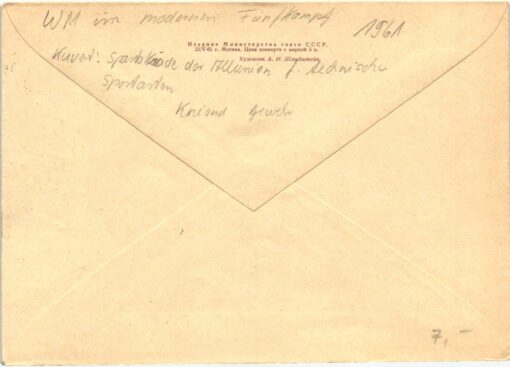 WM im modernen Fünfkampf 1961
Издание Министерства связи СССР.
23/V-61 г. Москва. Цена конверта с маркой 5 к.
Художник А. И. Шмидштейн
Kuvert: Spartakiade der Allunion f. technische
Sportarten
Kniend Gewehr
7,–